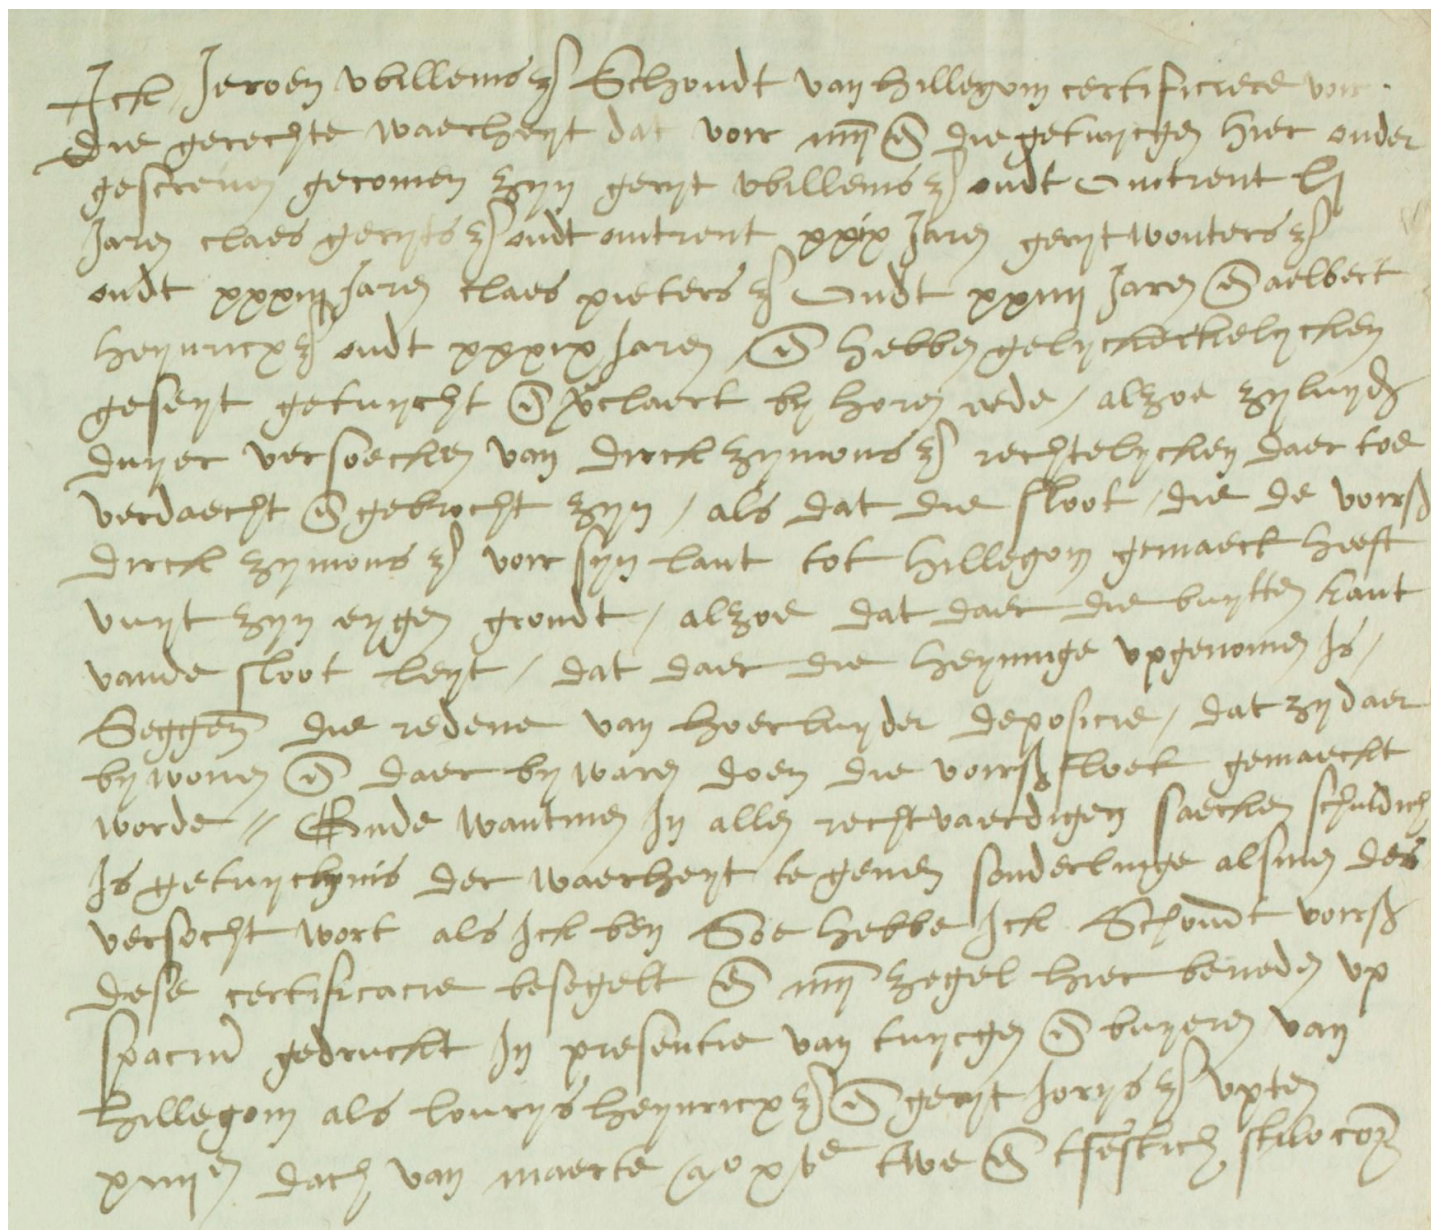 Ick Jeroen Willems z Schoudt van hillegom certificiere voir
die gerechte waerheyt dat voir mij en die getuijcgen hier onder
gescreven gecomen zijn geryt Willems z oudt omtrent lj
Jaren claes geryts z oudt omtrent xxix Jaren geryt wouters z
oudt Jaren claes pieters z Oudt xxiiij Jaren en aelbert
heynricx z oudt xxxix Jaren en hebben gelyckerkelycken
geseyt getuijcht en verclaert by horen eede / alzoe zyluyden
duyer versoecken van dirck zymons z rechtelycken daer toe
verdaecht en gebrocht zijn / als dat die sloot / die de voirs
dirck zymons z voir syn lant tot hillegom gemaeckt heeft
vuyt zijn eygen grondt / alzoe dat daer die buytten kant
vande sloot leyt / dat daer die heyninge upgenomen Is /
Seggen die redene van hoerluyder deposicie / dat zy daer
by wonen en daer by waren doen die voirs sloet gemaeckt
worde // Ende wantmen In allen rechtvaerdigen saecken schuldich
Is getuychnis der waerheyt te geven sonderlinge alsmen des
versocht wort als Ick ben Soe hebbe Ick Schoudt voirs
dese certificacie besegelt en mijn zegel hier beneden up
spacium gedruckt In presentie van tuycgen en bueren van
hillegom als lourijs heynricx z en geryt Jorys z upten
dach van maerte twe en tsestich stilo com